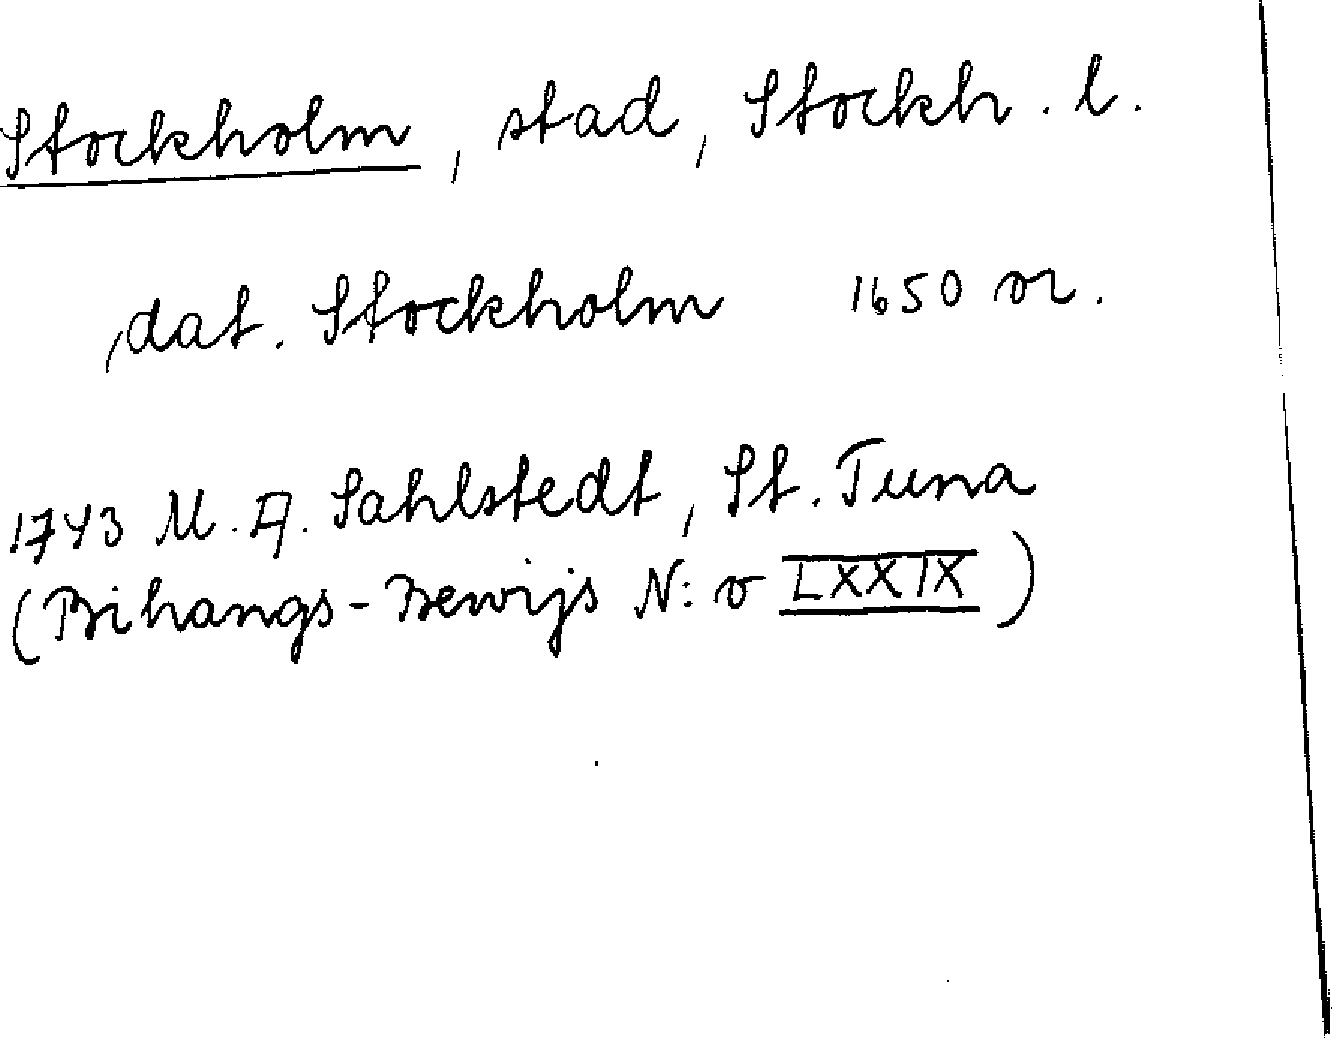 Stockholm, stad, Stockh. l.
,dat. Stockholm 1650 or.
1743 M. A. Sahlstedt, St. Tuna
(Bihangs-Bewijs N:o LXXIX)